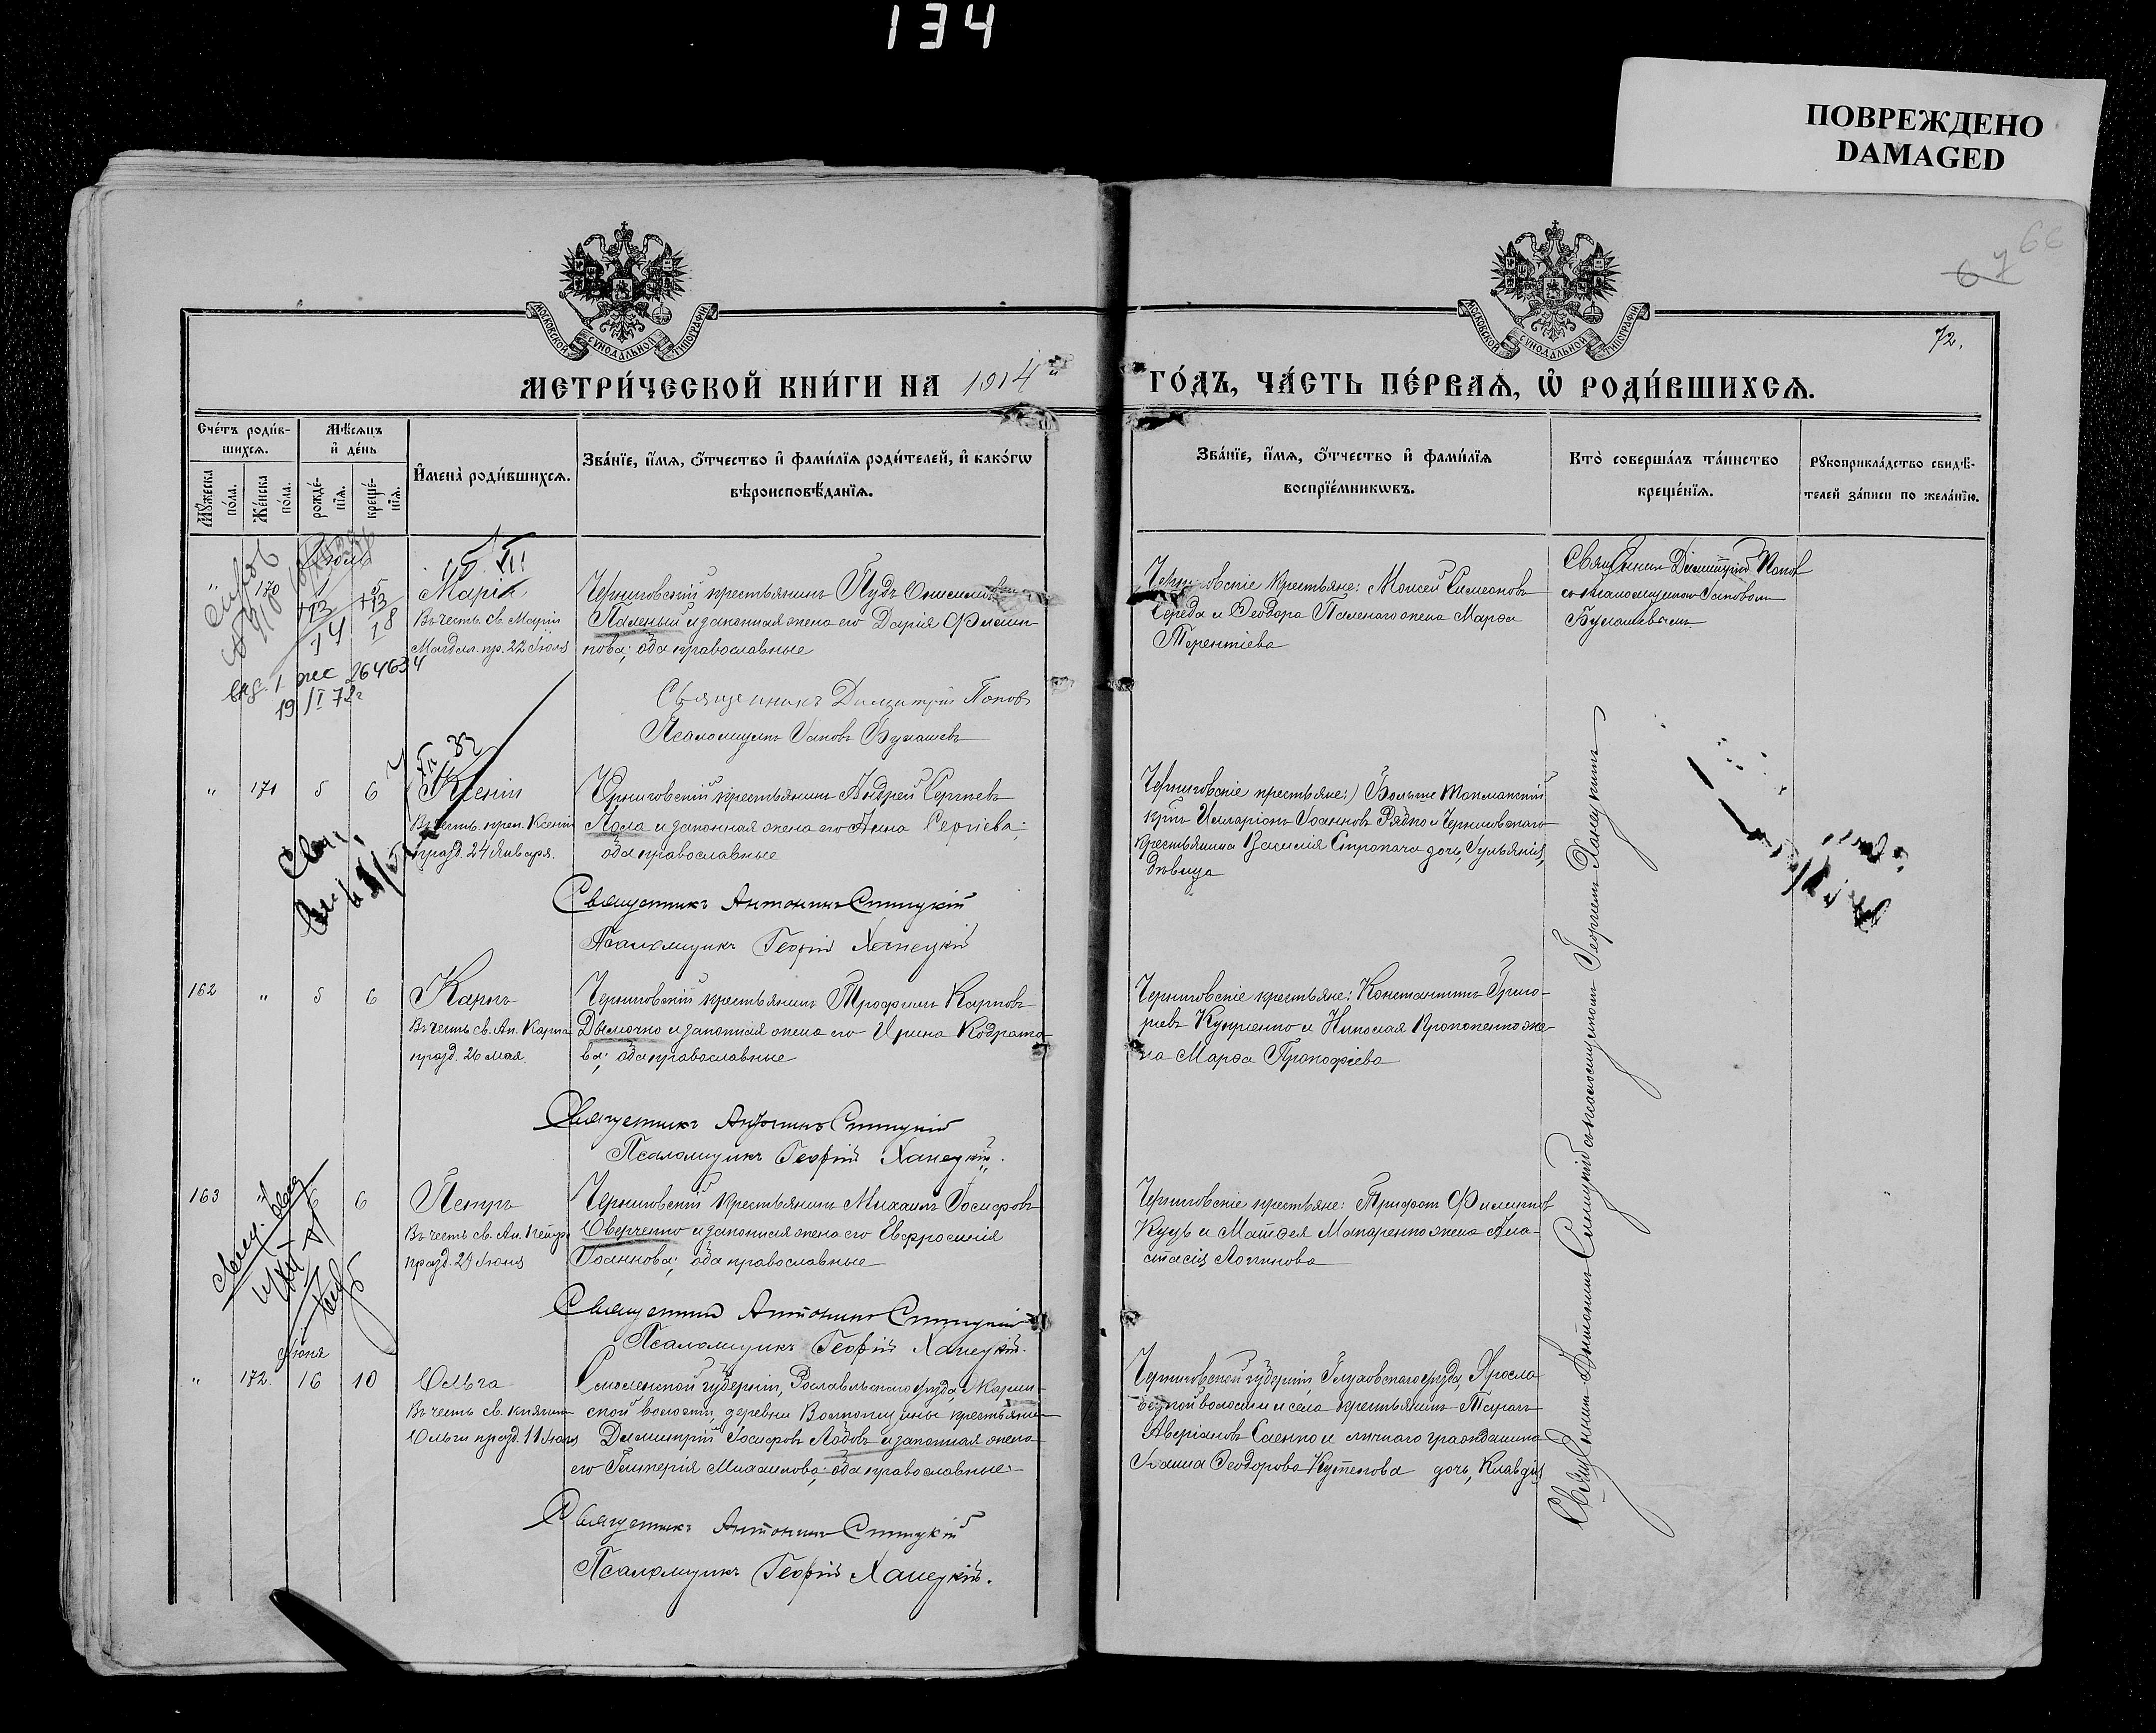 134
ПОВРЕЖДЕНО
DAMAGED
66
67
72.
МОСКОВСКОЙ СѴНОДАЛЬНОЙ ТИПОГРАФІИ
МОСКОВСКОЙ СѴНОДАЛЬНОЙ ТИПОГРАФІИ
МЕТРИ́ЧЕСКОЙ КНИ́ГИ НА 1914 й
ГО́ДЪ, ЧА́СТЬ ПЕ́РВАѦ, Ѡ РОДИ́ВШИХСѦ.
Сче́тъ роди́в-
шихсѧ.
Мꙋжеска
по́ла.
Же́нска
по́ла.
Мѣ́сѧцъ
и҆ де́нь
рожде́-
нїѧ.
креще́-
нїѧ.
И҆мена̀ роди́вшихсѧ.
Зва́нїе, и҆́мѧ, ѻ҆́тчество и҆ фами́лїѧ роди́телей, и҆ како́гѡ
вѣроисповѣ́данїѧ.
Зва́нїе, и҆́мѧ, ѻ҆́тчество и҆ фами́лїѧ
воспрїе́мникѡвъ.
Кто̀ соверша́лъ та́инство
креще́нїѧ.
Рꙋкоприкла́дство свидѣ́-
телей за́писи по жела́нїю.
Іюль
" 170
Марія
Въ честь св. Маріи
Магдал. пр. 22 Іюля
264634
Черниговскій крестьянинъ Пудъ Онисимовъ
Паленый и законная жена его Дарія Филип-
пова; оба православные
Священникъ Димитрій Попов
Псаломщикъ Іаковъ Булашевъ
Черниговскіе крестьяне: Моисей Симеоновъ
Середа и Ѳеодора Паленаго жена Марѳа
Терентіева
Священникъ Димитрій Попов
съ псаломщикомъ Іаковомъ
Булашевымъ
" 171 5 6
Ксенія
Въ честь преп. Ксеніи
празд. 24 Января.
Черниговскій крестьянинъ Андрей Сергіевъ
Лола и законная жена его Анна Сергіева;
оба православные
Священникъ Антонинъ Синицкій
Псаломщикъ Георгій Ханецкій
Черниговскіе крестьяне:) Больше Токмакскій
кр-нъ Илларіонъ Іоанновъ Рядко и Черниговскаго
крестьянина Василія Стропача дочь, Іульянія,
дѣвица
162 " 5 6
Карпъ
Въ честь св. Ап. Карпа
празд. 26 мая
Черниговскій крестьянинъ Трофимъ Карповъ
Дымочко и законная жена его Ирина Кодрато-
ва; оба православные
Священникъ Антонинъ Синицкій
Псаломщикъ Георгій Ханецкій.
Черниговскіе крестьяне: Константинъ Григо-
ріевъ Купріенко и Николая Прокопенко же-
на Марѳа Прокофіева
163 " 6 6
Петръ
Въ честь св. Ап. Петра
празд. 29 Іюня
Черниговскій крестьянинъ Михаилъ Іосифовъ
Оверченко и законная жена его Евфросинія
Іоаннова; оба православные
Священникъ Антонинъ Синицкій
Псаломщикъ Георгій Ханецкій.
Черниговскіе крестьяне: Трифонъ Филиппов
Куць и Матѳея Макаренко жена Ана-
стасія Логинова
Іюня
" 172. 16 10
Ольга
Въ честь св. княгини
Ольги празд. 11 Іюля
Смоленской губерніи, Рославльскаго уѣзда, Марин-
ской волости, деревни крестьянин
Димитрій Іосифовъ Лобовъ и законная жена
его Гликерія Михаилова; оба православные
Священникъ Антонинъ Синицкій
Псаломщикъ Георгій Ханецкій.
Черниговской губерніи, Глуховскаго уѣзда, Яросла-
вецкой волости и села крестьянинъ Тарас
Аверіановъ Саенко и личнаго гражданина
Іоанна Ѳеодорова Кутепова дочь, Клавдія
Священникъ Антонинъ Синицкій съ псаломщикомъ Георгіемъ Ханецкимъ